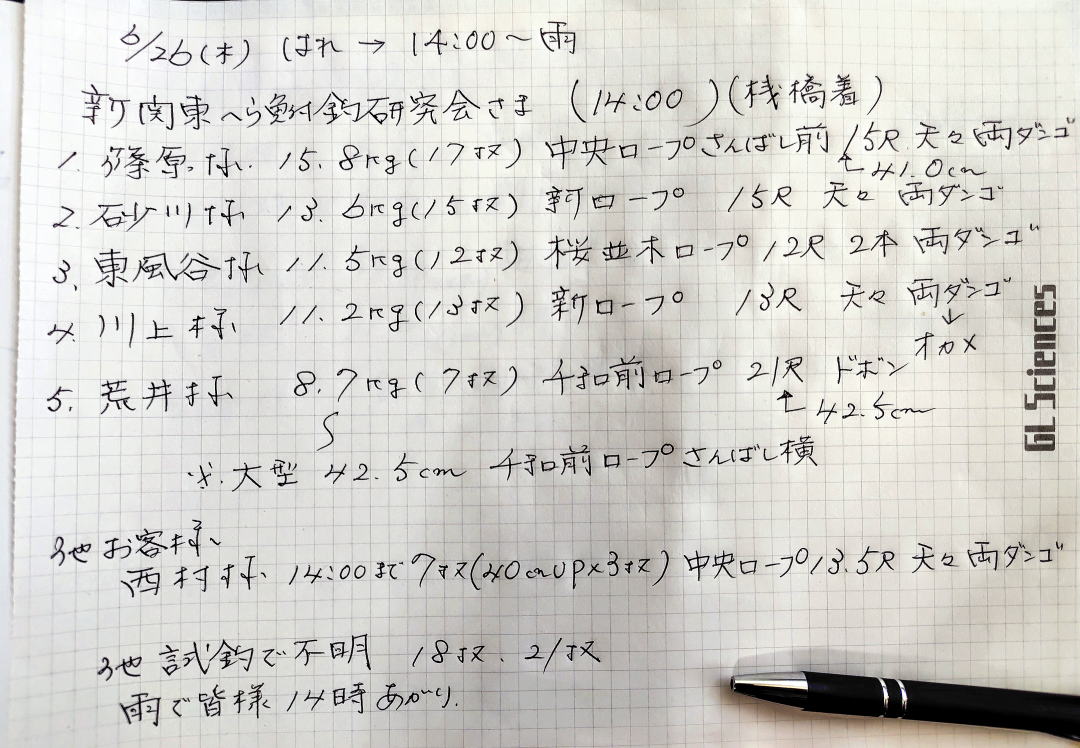 6/26(木) はれ → 14:00～雨
新関東へら鮒釣研究会さま (14:00) (桟橋着)
1. 篠原様 15.8kg(17枚) 中央ロープさんばし前 15尺 天々 両ダンゴ
↑41.0cm
2. 砂川様 13.6kg(15枚) 新ロープ 15尺 天々 両ダンゴ
3. 東風谷様 11.5kg(12枚) 桜並木ロープ 12尺 2本 両ダンゴ
4. 川上様 11.2kg(13枚) 新ロープ 13尺 天々 両ダンゴ
↓
オカメ
5. 荒井様 8.7kg(7枚) 千和前ロープ 21尺 ドボン
↑42.5cm
※大型 42.5cm 千和前ロープさんばし横
他お客様
西村様 14:00まで7枚(40cmUP×3枚) 中央ロープ13.5尺 天々両ダンゴ
他 試釣で不明 18枚、21枚
雨で皆様14時あがり.
GL Sciences